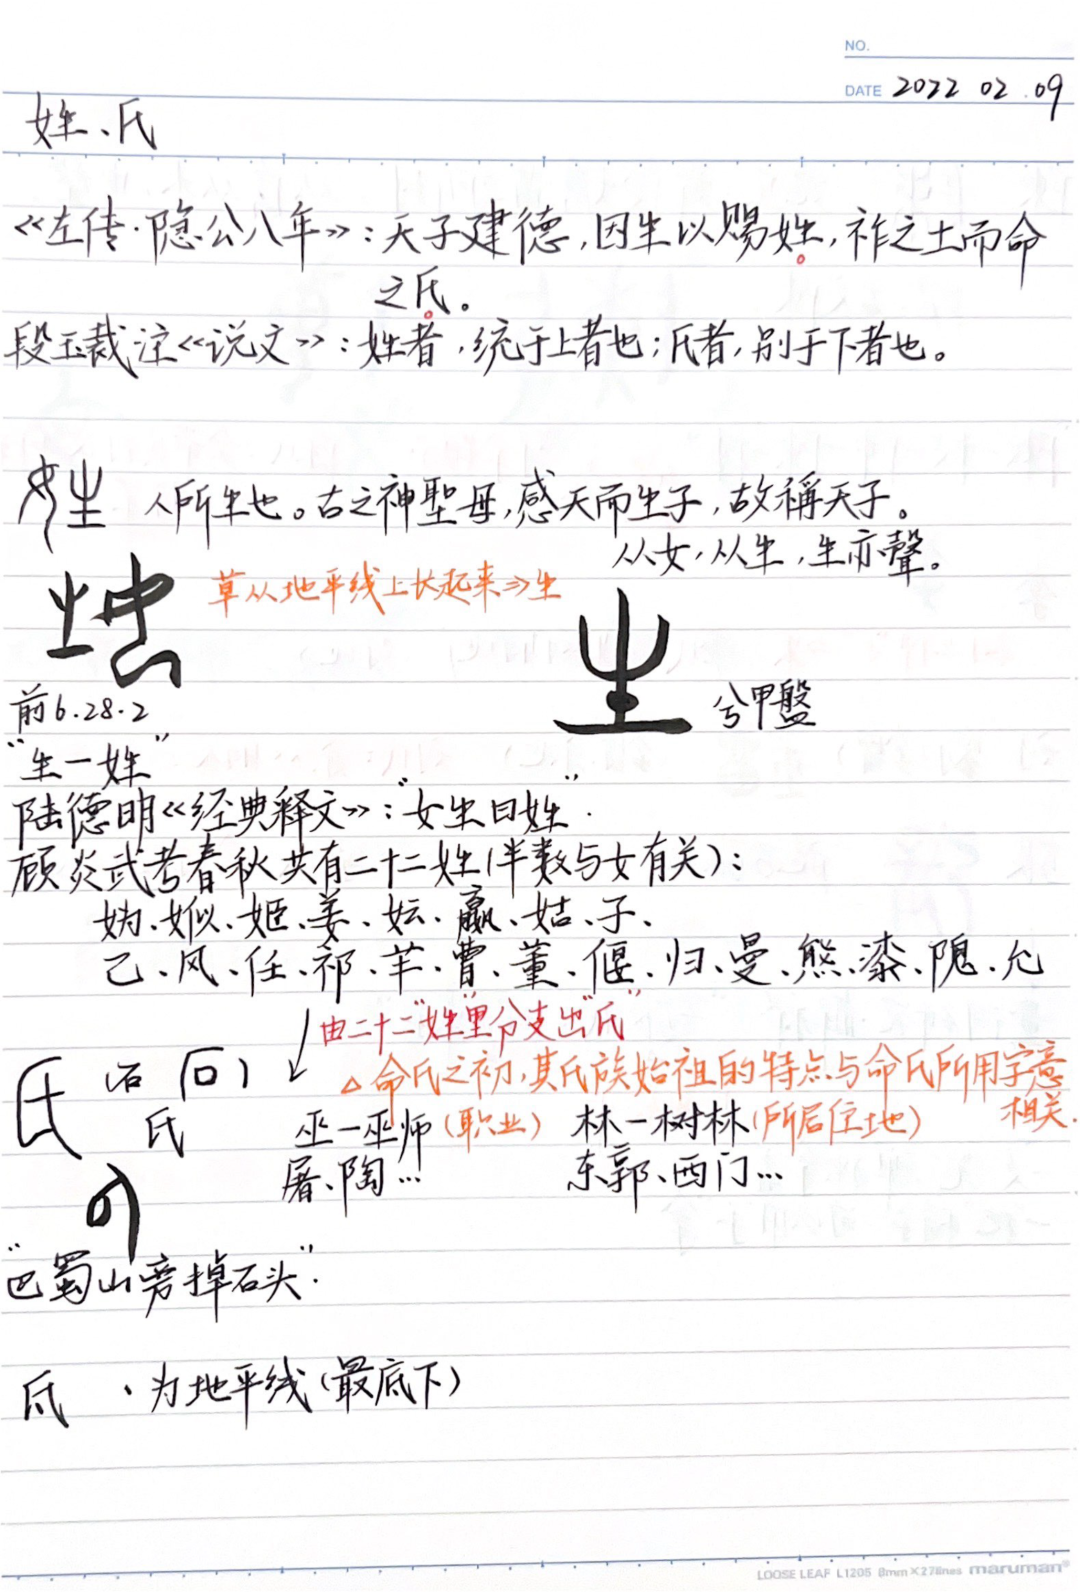 NO.
DATE 2022 02.09
姓、氏
《左传·隐公八年》：天子建德，因生以赐姓，祚之土而命
之氏。
段玉裁注《说文》：姓者，统于上者也；氏者，别于下者也。
姓 人所生也。古之神聖母，感天而生子，故稱天子。
从女，从生，生亦聲。
草从地平线上长起来⇒生
生 兮甲盤
前6.28.2
“生—姓”
陆德明《经典释文》：“女生曰姓”.
顾炎武考春秋共有二十二姓(半数与女有关)：
妫、姒、姬、姜、妘、嬴、姞、子、
己、风、任、祁、芈、曹、董、偃、归、曼、熊、漆、隗、允
由二十二“姓”里分支出“氏”
△命氏之初，其氏族始祖的特点与命氏所用字意
相关.
氏 石
氏
巫—巫师(职业) 林—树林(所居住地)
屠、陶… 东郭、西门…
“巴蜀山旁掉石头”.
氐 、为地平线(最底下)
LOOSE LEAF L1205 8mm×27lines maruman®